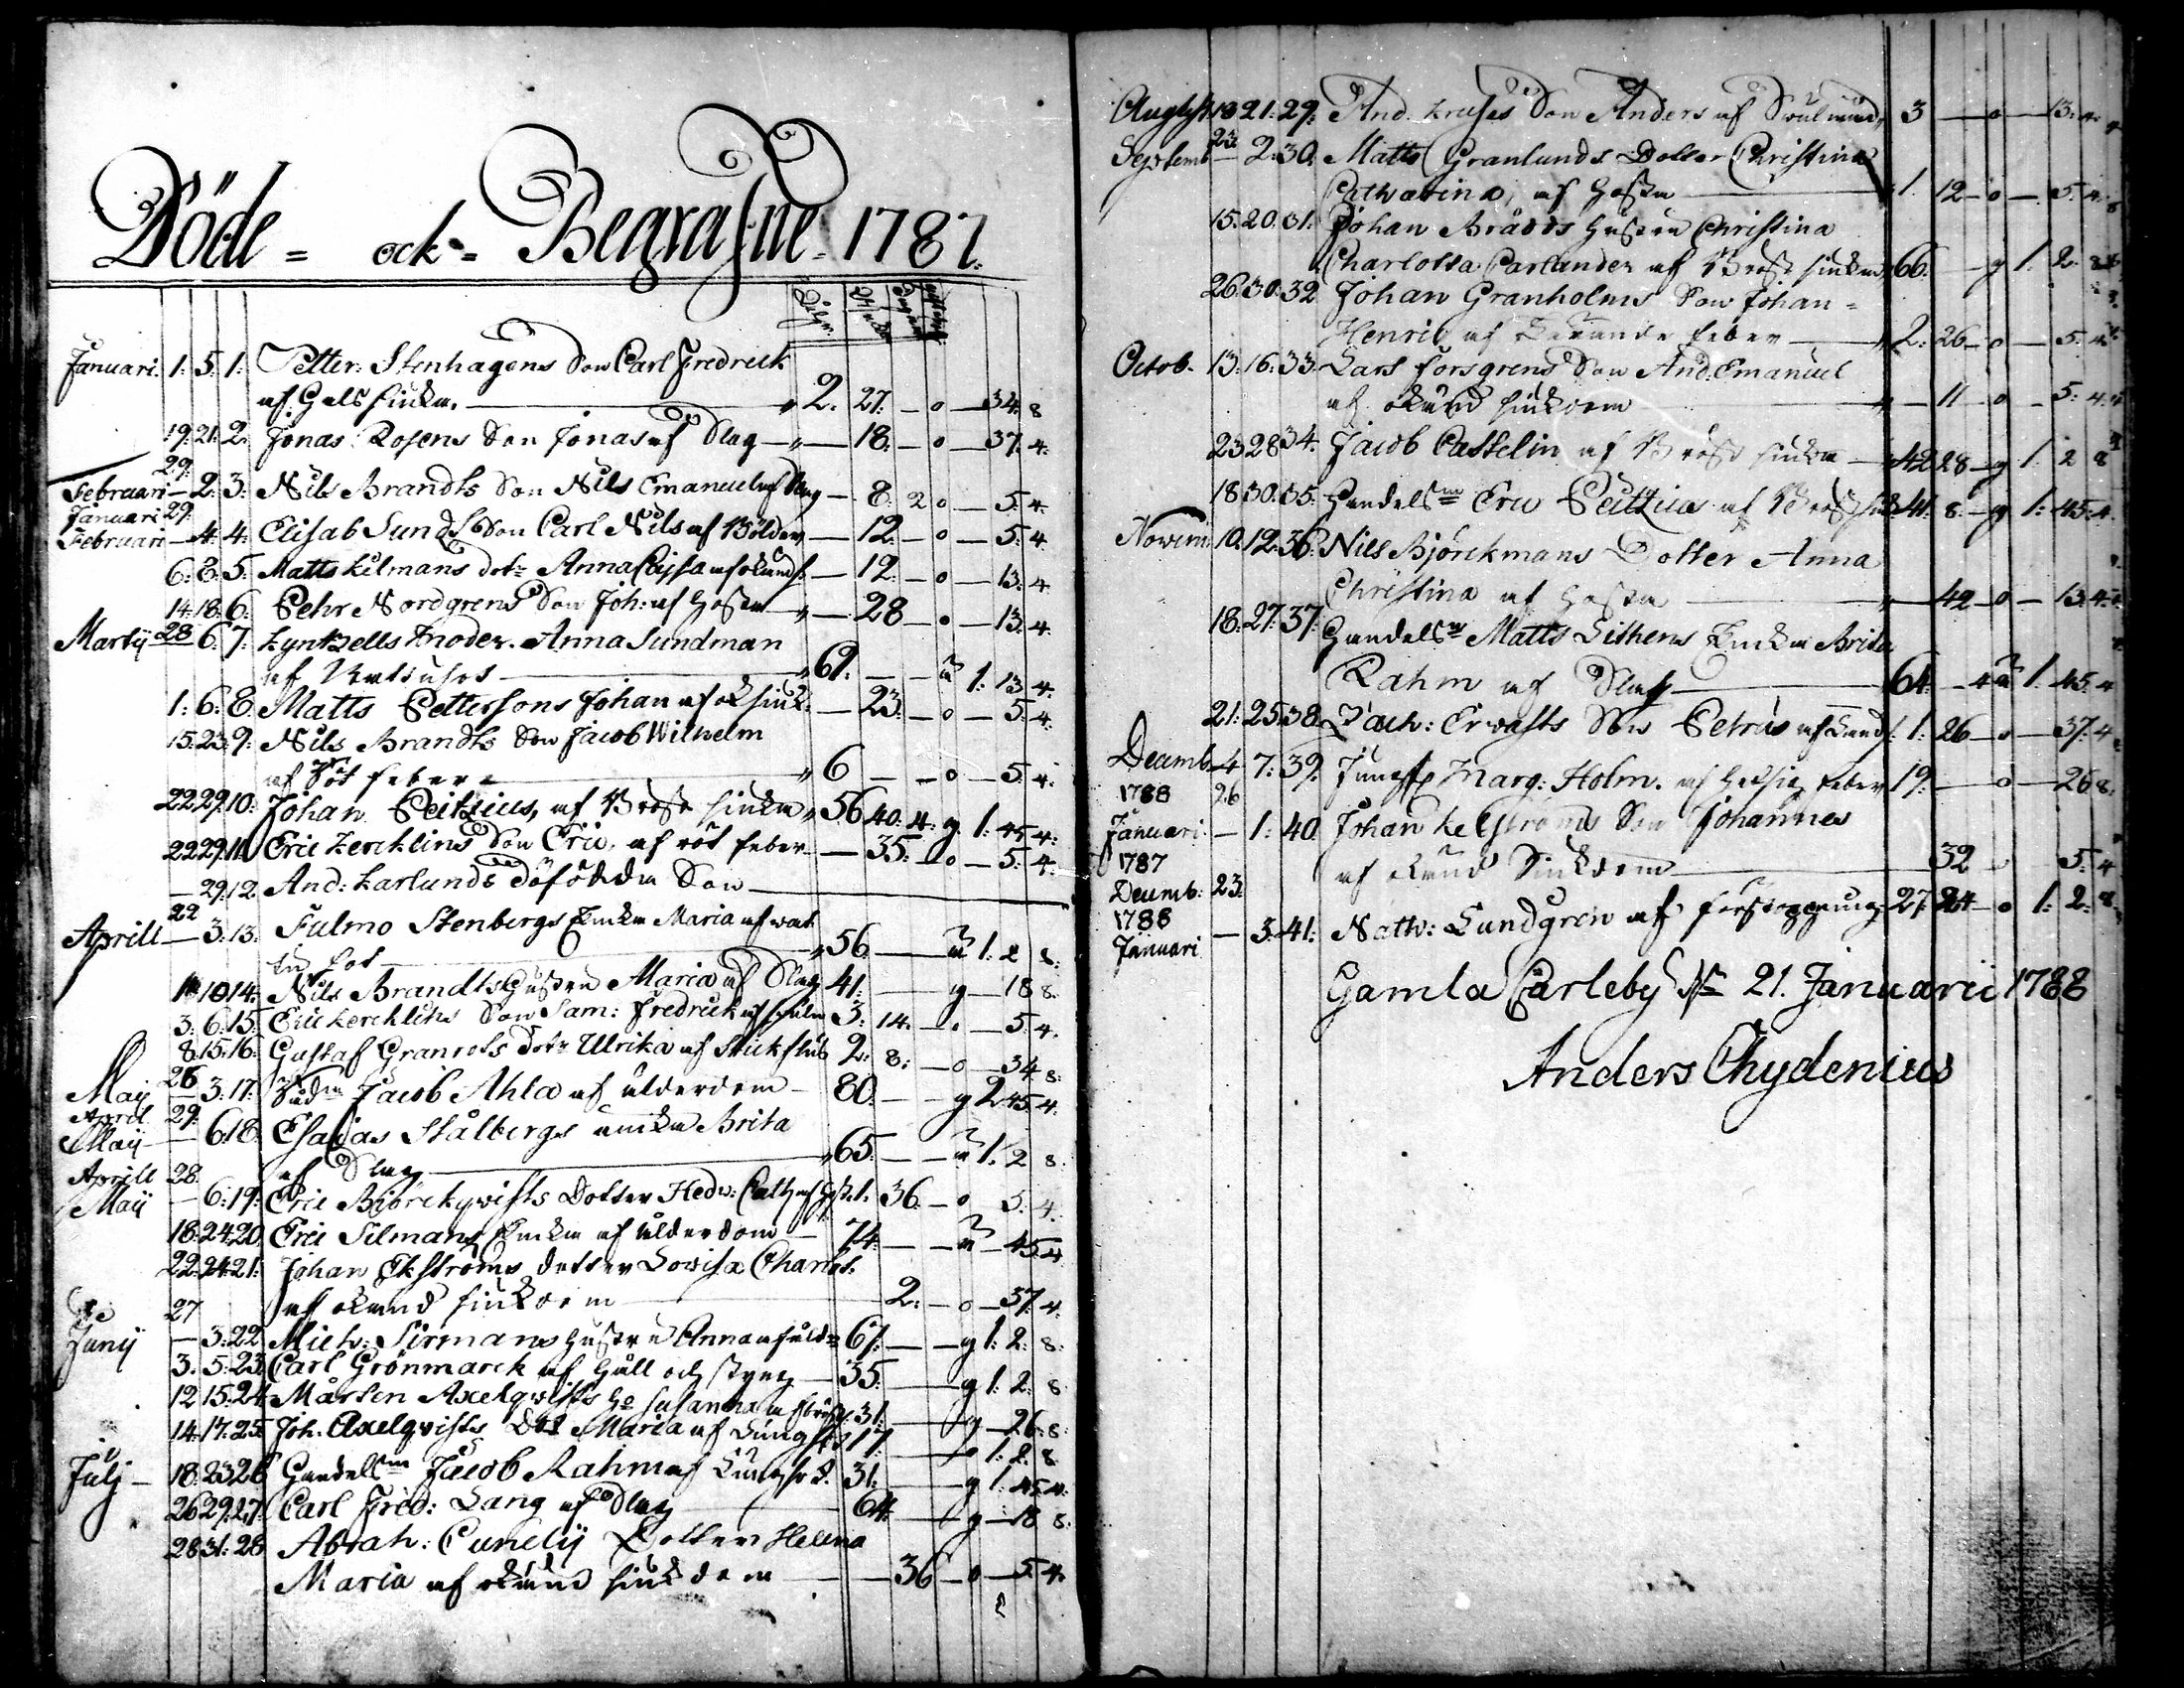 Döde = ock = Begrafne = 1787.
Januari. 1: 5: 1: Petter Stenhagens Son Carl Fredrick
af Halssiuka. 2. 27. — o — 34: 8
19: 21: 2: Jonas Rosens Son Jonas af Slag — 18. — o — 37: 4.
29:
Februari — 2: 3: Nils Brandts Son Nils Emanuel af Slag — 8: 2 o — 5: 4.
Januari 29:
Februari — 4: 4: Elisab Sunds Son Carl Nils af Bölder — 12. — o — 5: 4
6: 8: 5: Matts Kilmans dotr Anna Cajsa af okänd s. — 12. — o — 13: 4
14: 18: 6: Pehr Nordgrens Son Joh: af Hosta — 28 — o — 13: 4.
Martij 28 6: 7: Lyntzells moder. Anna Sundman
af Vattusot 69: — — ä 1: 13 4.
1: 6: 8: Matts Pettersons Johan af ok siuk. — 23: — o — 5: 4.
15: 23: 9: Nils Brandts Son Jacob Wilhelm
af Röt feber 6 — — o — 5: 4.
22 29: 10: Johan Peitzius, af Bröst siuka 56 40: 4: g. 1: 45 4:
22 29: 11 Eric Lercklins Son Eric, af röt feber — 35: — o — 5: 4.
— 29: 12 And: Karlunds döfödda Son
22
Aprill — 3: 13: Fulmo Stenbergs Enka Maria af wat
tu sot 56 — — ä 1: 2 8:
10 14: Nils Brandts Hustru Maria af Slag 41: — — g — 18 8.
3: 6: 15: Eric Lercklins Son Sam: Fredrick af 3: 14. — o — 5 4.
8: 15: 16: Gustaf Granrots dotr Ulrika af Stickfluss 2: 8: — o — 34 8:
26
Maij — 3: 17: Jacob Ahla af ålderdom — 80: — — g 2 45 4.
April 29:
Maij — 6: 18: Esaias Stålbergs enka Brita
af Slag 65 — — ä 1: 2 8:
Aprill 28.
Maij — 6: 19: Eric Björckqwists Dotter Hedw: Cath af Hst. 1. 36 — o 5 4.
18: 24: 20 Eric Silmans Enka af ålderdom — 74: — — ä — 45: 4
22: 24: 21: Johan Ekströms dotter Lovisa Charlot.
af okänd siukdom 2: — o — 37: 4.
27
Junij — 3: 22 Mich: Sirmans hustru Anna af åld: 67: — — g 1: 2: 8:
3: 5: 23 Carl Grönmarck af Håll och styng — 35: — — g 1: 2: 8
12 15: 24 Mårten Axelqwists Ho Susanna af bröst. 31: — — g — 26: 8:
14: 17: 25: Joh. Axelqvists Dot Maria af Lungsot 17: — — o 1: 2: 8
Julj — 18: 23 26 Handelsm Jacob Rahm af Lungsot. 31: — — g 1: 45 4.
26 29: 27: Carl Fred: Lang af Slag 64 — — g — 18 8:
28 31: 28 Abrah: Cunelij Dotter Helena
Maria af okänd siukdom 36 — o — 5. 4.
Augusti 18 21: 29: And. Kruses Son Anders af 3 — o — 13: 4.
23
Septemb — 2: 30: Matts Granlunds Dotter Christina
Catharina, af Hosta 1. 12 — o — 5: 4.
15: 20: 31: Johan Brådds Hustru Christina
Charlotta Carlander af Bröst siuka 66: — g 1: 2: 8
26: 30: 32 Johan Granholms Son Johan =
Henric af feber 2: 26 — o — 5: 4
Octob. 13: 16: 33: Lars Forsgrens Son And: Emanuel
af okänd siukdom — 11 — o — 5: 4.
23 28 34. Jacob Casselin af Bröst siuka — 42 28 — g 1: 2 8
18 30: 35: Handelsm Eric Peitzius af Bröst siuk 41: 8: — g 1: 45: 4
Novem: 10: 12: 36: Nils Björckmans Dotter Anna
Christina af Hosta — 42 — o — 13: 4.
18: 27: 37: Handelsm Matts Lithens Enka Brita
Rahm af Slag 64: — 4 ä 1: 45: 4
21: 25: 38: Zach: Erwasts Son Petrus af 1: 26 — o — 37: 4
Decemb — 4 7: 39: Jungfr Marg: Holm. af Hetsig feber 19: — o — 26 8:
1788 26
Januari. — 1: 40 Johan Kelströms Son Johannes
1787 af okänd Siukdom 32 o 5: 4
Decemb: 23:
1788
Januari — 3: 41: Nath: Lundgren af förstoppning 27: 24 — o 1: 2: 8
Gamla Carleby d. 21. Januarii 1788
Anders Chydenius